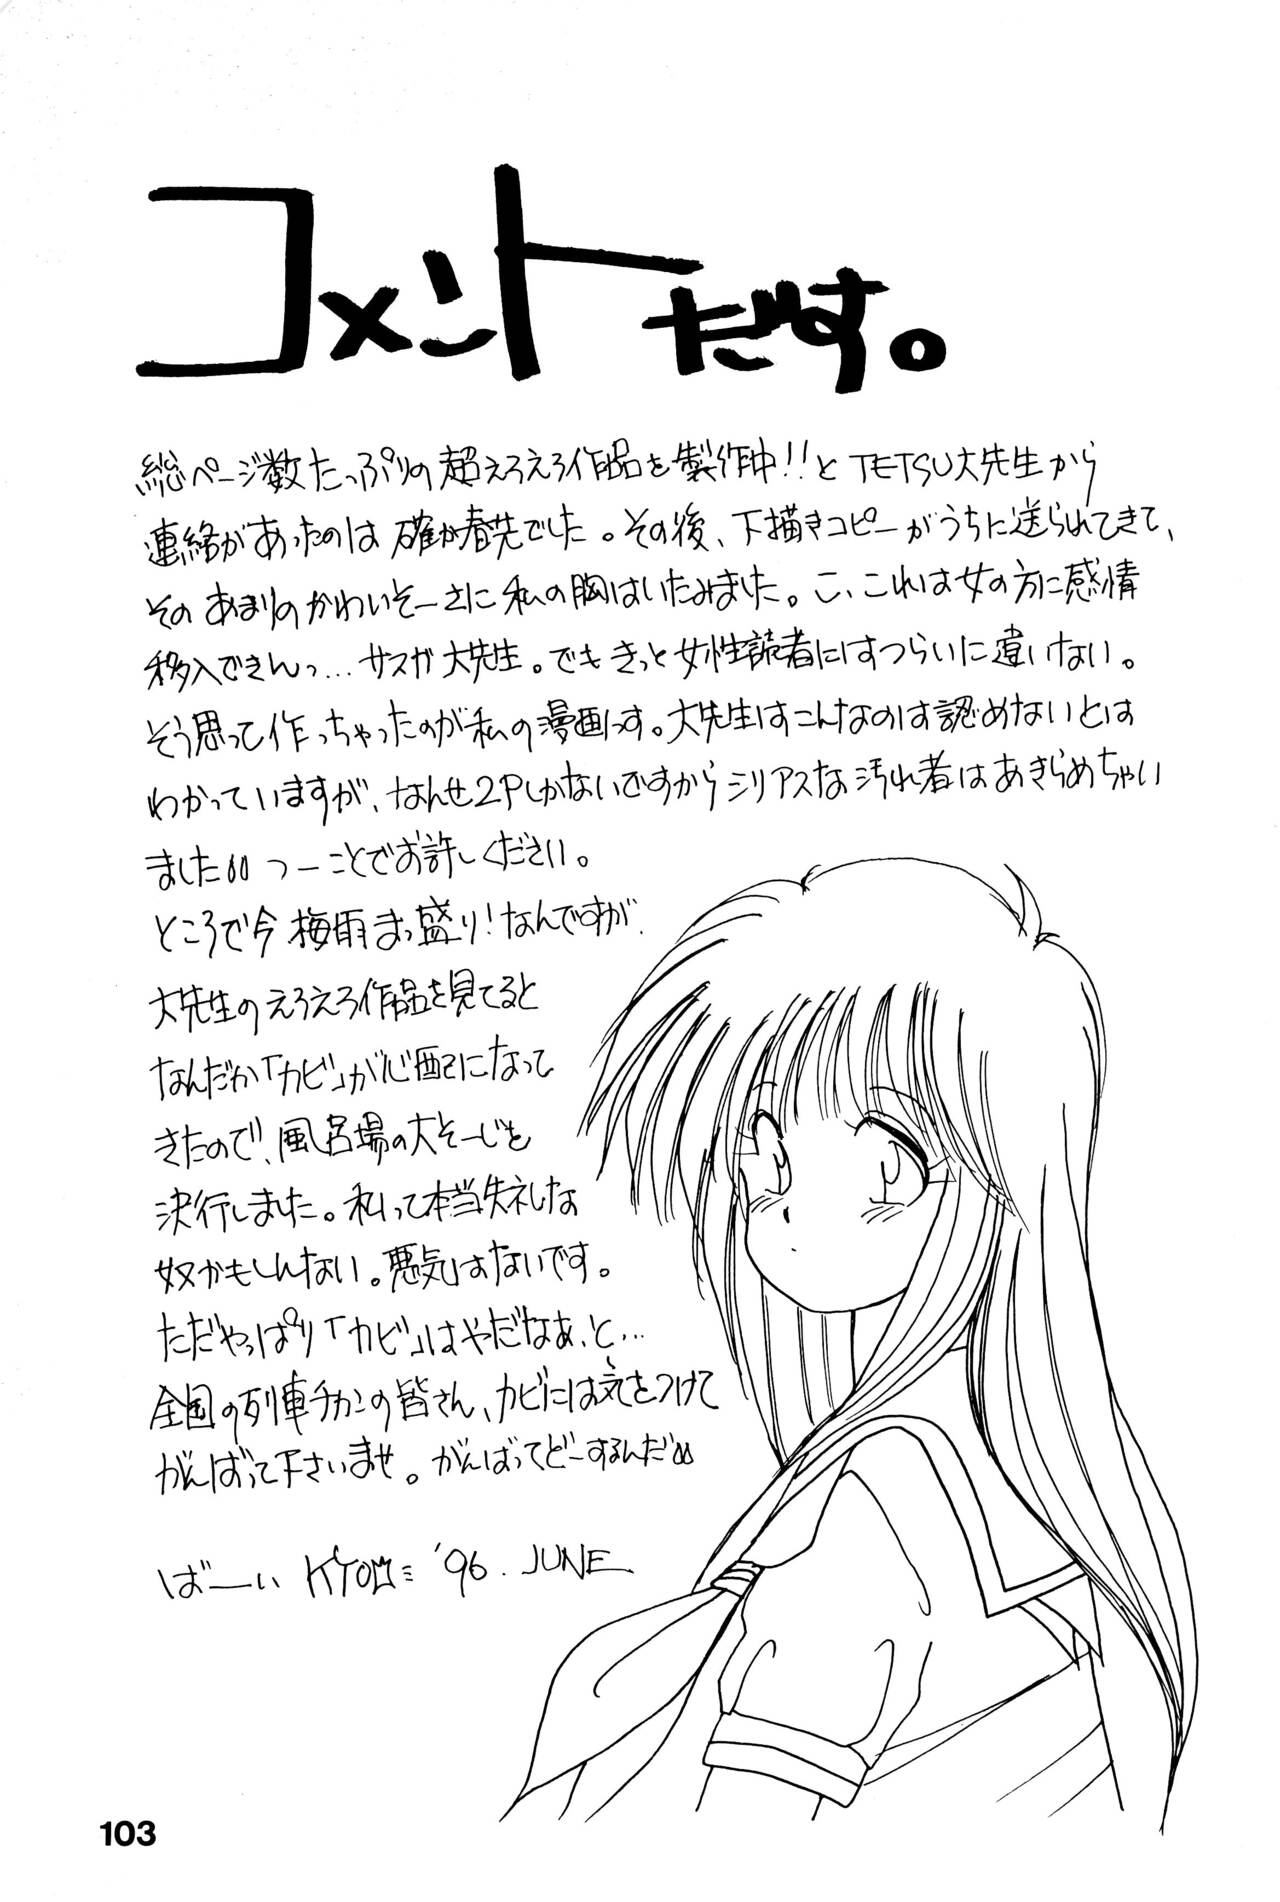 コメントだす。
総ページ数たっぷりの超えろえろ作品を製作中!!とTETSU大先生から
連絡があったのは確か春先でした。その後、下描きコピーがうちに送られてきて、
そのあまりのかわいそーさに私の胸はいたみました。こ、これは女の方に感情
移入できんっ…サスガ大先生。でもきっと女性読者にはつらいに違いない。
そう思って作っちゃったのが私の漫画っす。大先生はこんなのは認めないとは
わかっていますが、なんせ2Pしかないですからシリアスな汚れ者はあきらめちゃい
ました つーことでお許しください。
ところで今梅雨まっ盛り!なんですが、
大先生のえろえろ作品を見てると
なんだか「カビ」が心配になって
きたので、風呂場の大そーじを
決行しました。私って本当失礼な
奴かもしんない。悪気はないです。
ただやっぱり「カビ」はやだなぁ、と…
全国の列車チカンの皆さん、カビには気をつけて
がんばって下さいませ。がんばってどーするんだ
ばーい '96. JUNE
103